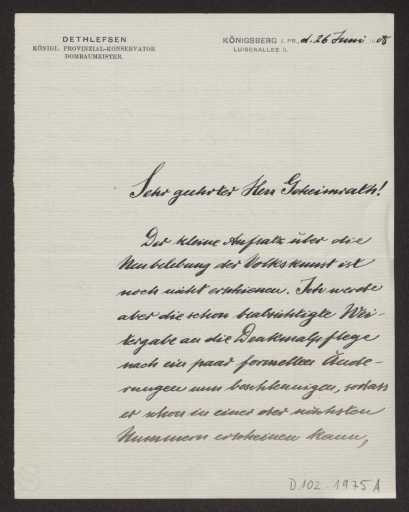 DETHLEFSEN
KÖNIGL. PROVINZIAL-KONSERVATOR
DOMBAUMEISTER.
KÖNIGSBERG I. PR., d. 26 Juni 08
LUISENALLEE
Sehr geehrter Herr Geheimrath!
Der kleine Aufsatz über die
Neubelebung der Volkskunst ist
noch nicht erschienen. Ich werde
aber die schon beabsichtigte Wei-
tergabe an die Denkmalpflege
nach ein paar formellen Ände-
rungen nun beschleunigen, sodass
er schon in einer der nächsten
Nummern erscheinen kann,
D.102-1975 A